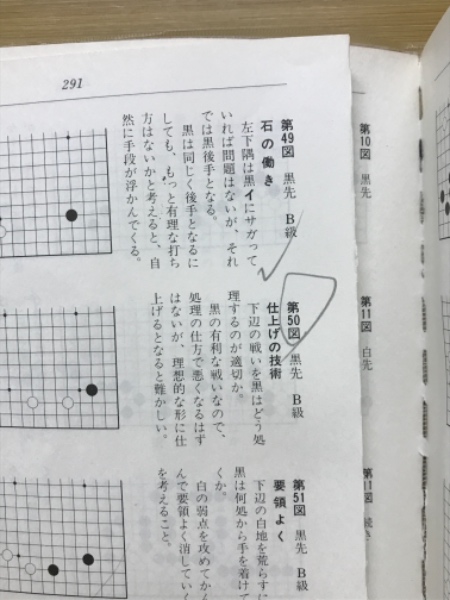 291
第49図 黒先 B級
石の働き
左下隅は黒イにサガって
いれば問題はないが、それ
では黒後手となる。
黒は同じく後手となるに
しても、もっと有理な打ち
方はないかと考えると、自
然に手段が浮かんでくる。
第50図 黒先 B級
仕上げの技術
下辺の戦いを黒はどう処
理するのが適切か。
黒の有利な戦いなので、
処理の仕方で悪くなるはず
はないが、理想的な形に仕
上げるとなると難かしい。
第51図 黒先 B級
要領よく
下辺の白地を荒らすに
黒は何処から手を着けて
くか。
白の弱点を攻めてかん
んで要領よく消していく
を考えること。
第10図 黒先
第11図 白先